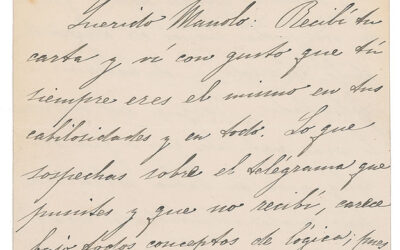 Querido Manolo: Recibí tu
carta y ví con gusto que tú
siempre eres el mismo en tus
cabilosidades y en todo. Lo que
sospechas sobre el telégrama que
pusistes y que no recibí, carece
bajo todos conceptos de lógica; pues